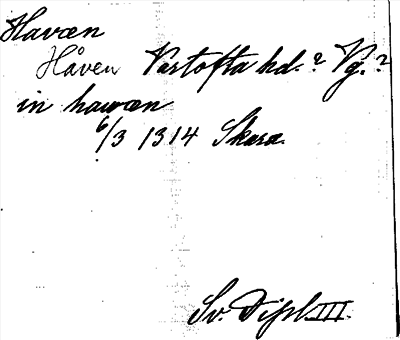 Havæn
Håven Vartofta hd.? Vg.?
in hawæn
6/3 1314 Skara.
Sv. Dipl. III.